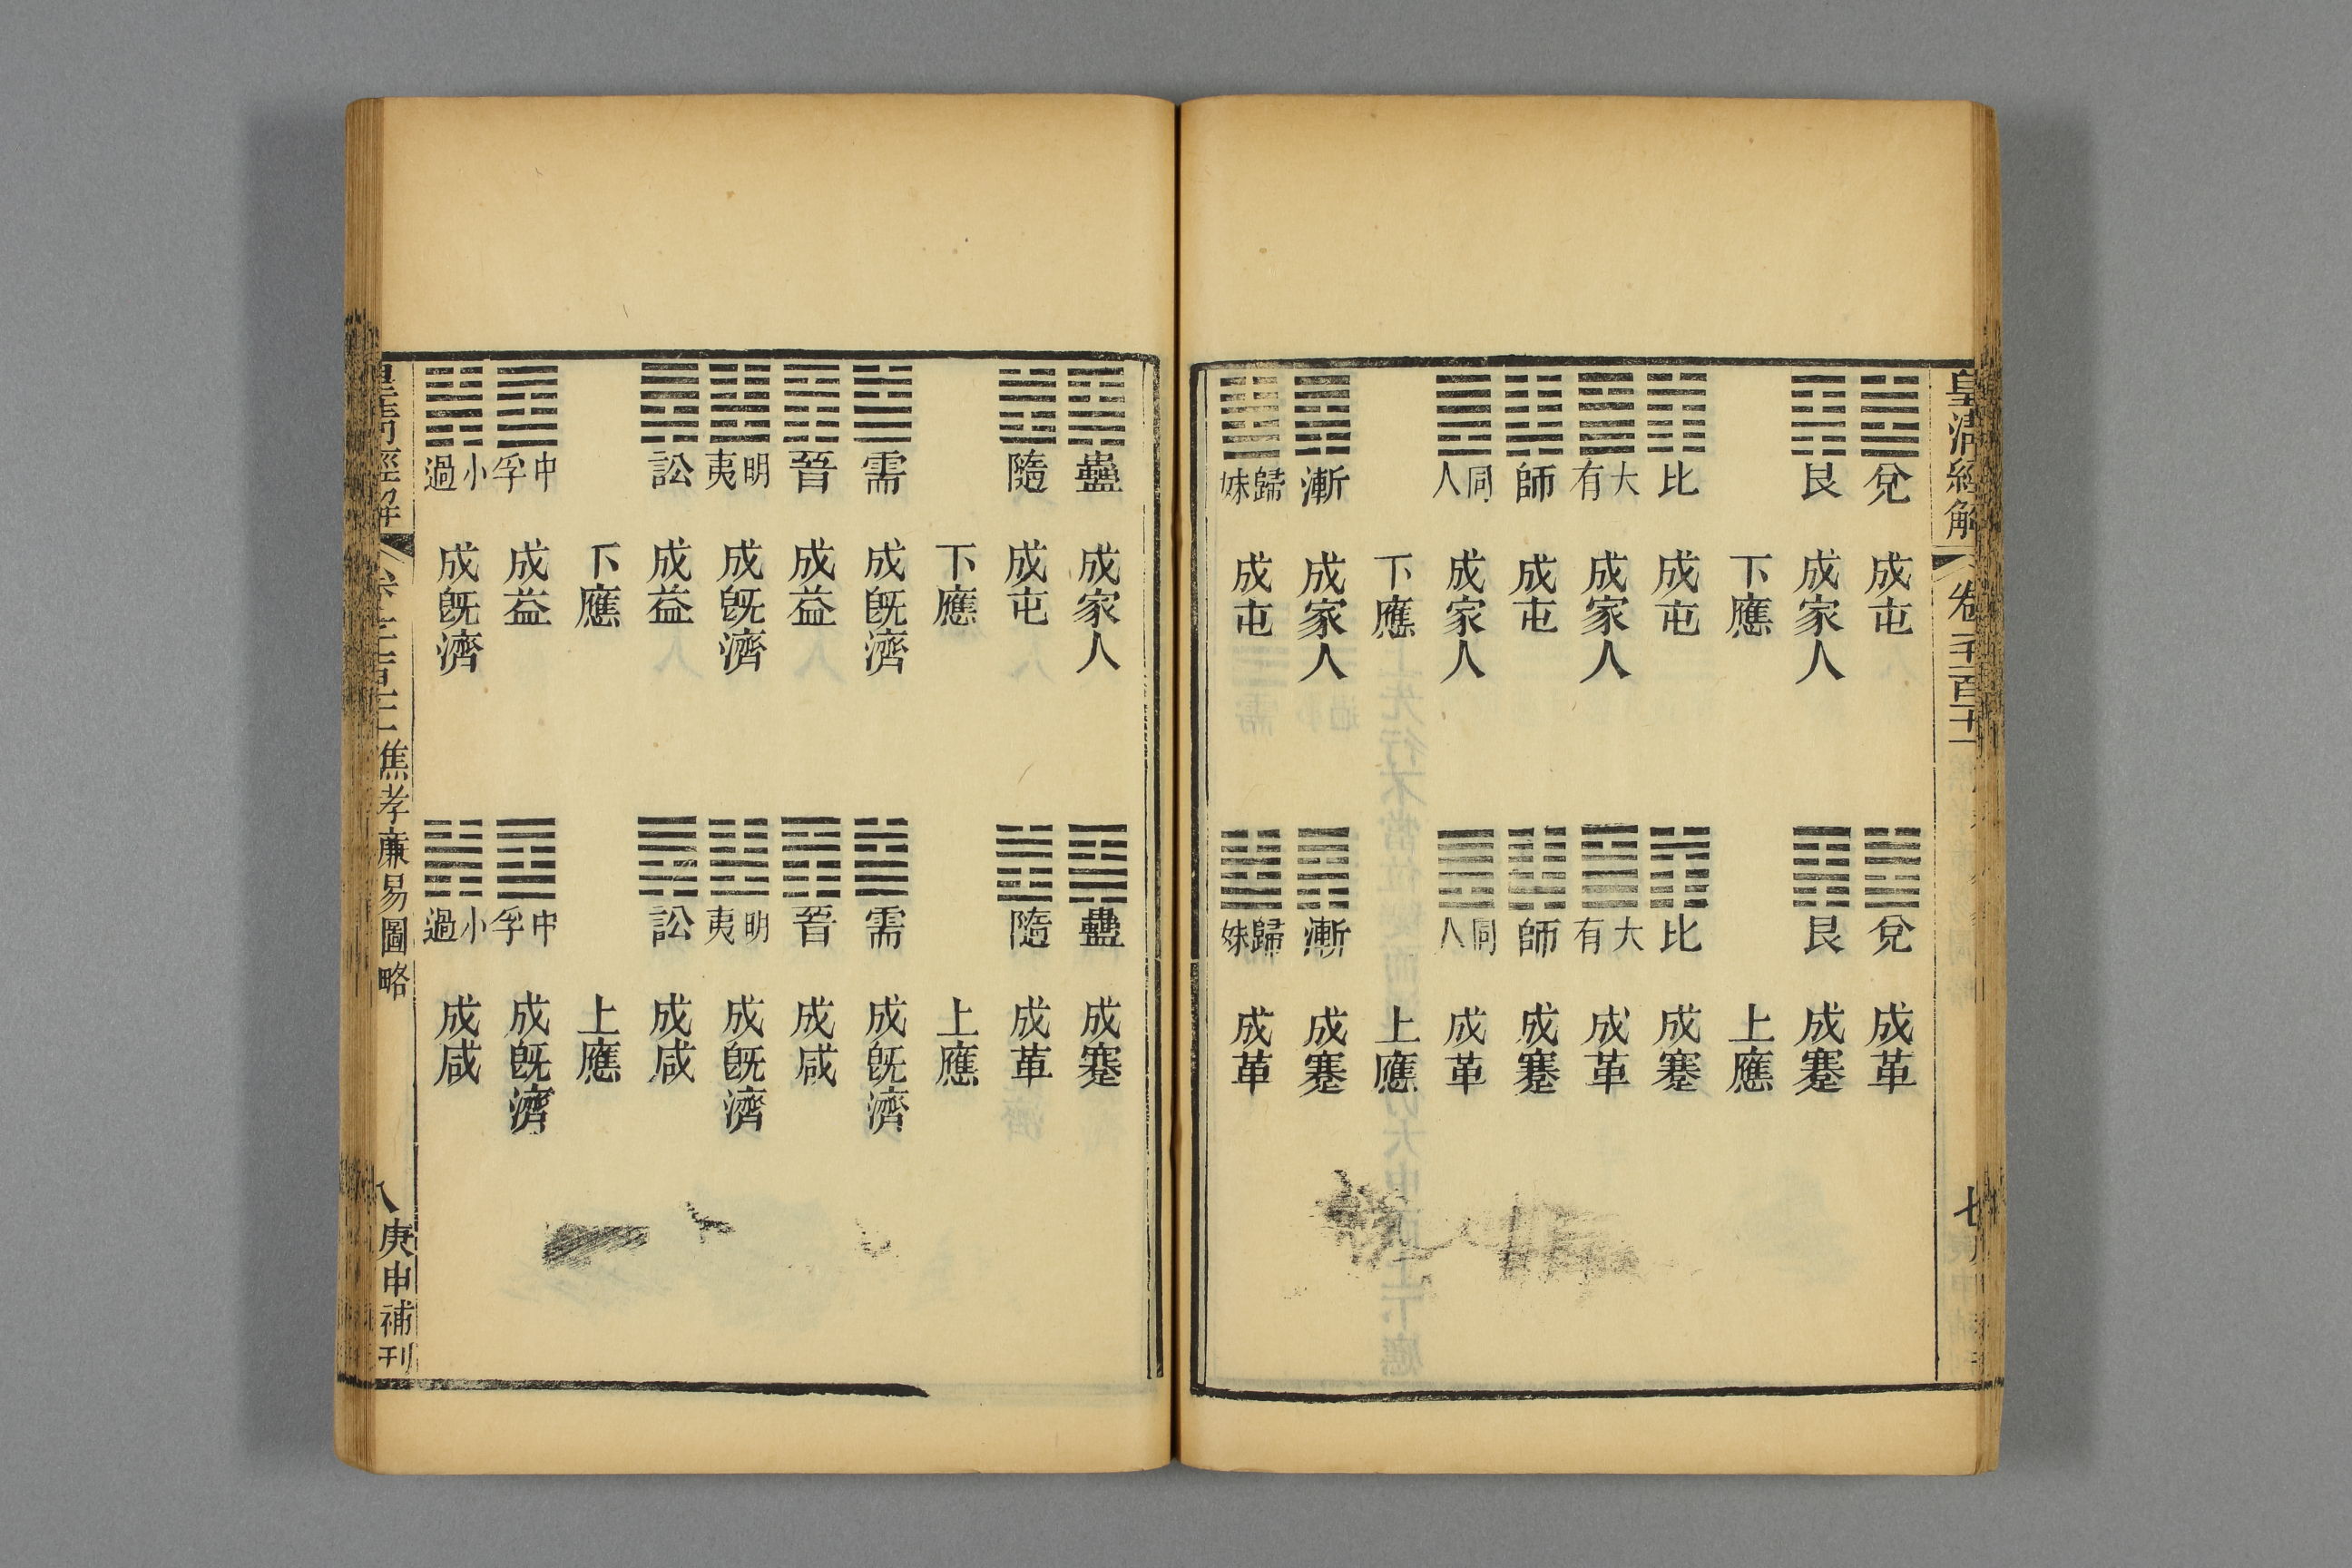 皇清經解 卷一千一百十一 七
兌 成屯 兌 成革
艮 成家人 艮 成蹇
下應 上應
比 成屯 比 成蹇
大有 成家人 大有 成革
師 成屯 師 成蹇
同人 成家人 同人 成革
下應 上應
漸 成家人 漸 成蹇
歸妹 成屯 歸妹 成革
蠱 成家人 蠱 成蹇
隨 成屯 隨 成革
下應 上應
需 成旣濟 需 成旣濟
晉 成益 晉 成咸
明夷 成旣濟 明夷 成旣濟
訟 成益 訟 成咸
下應 上應
中孚 成益 中孚 成旣濟
小過 成旣濟 小過 成咸
皇清經解 焦孝廉易圖略 八 庚申補刊